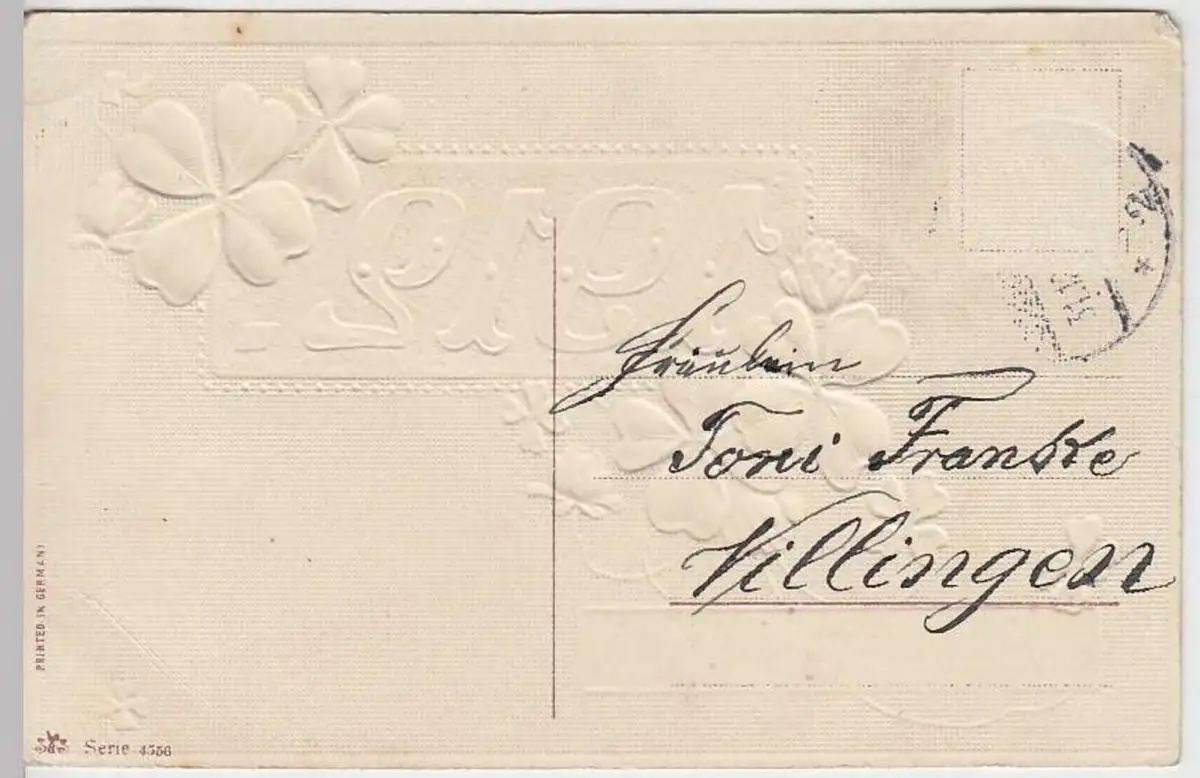 Fräulein
Toni Franke
Villingen
PRINTED IN GERMANY
Serie 4556